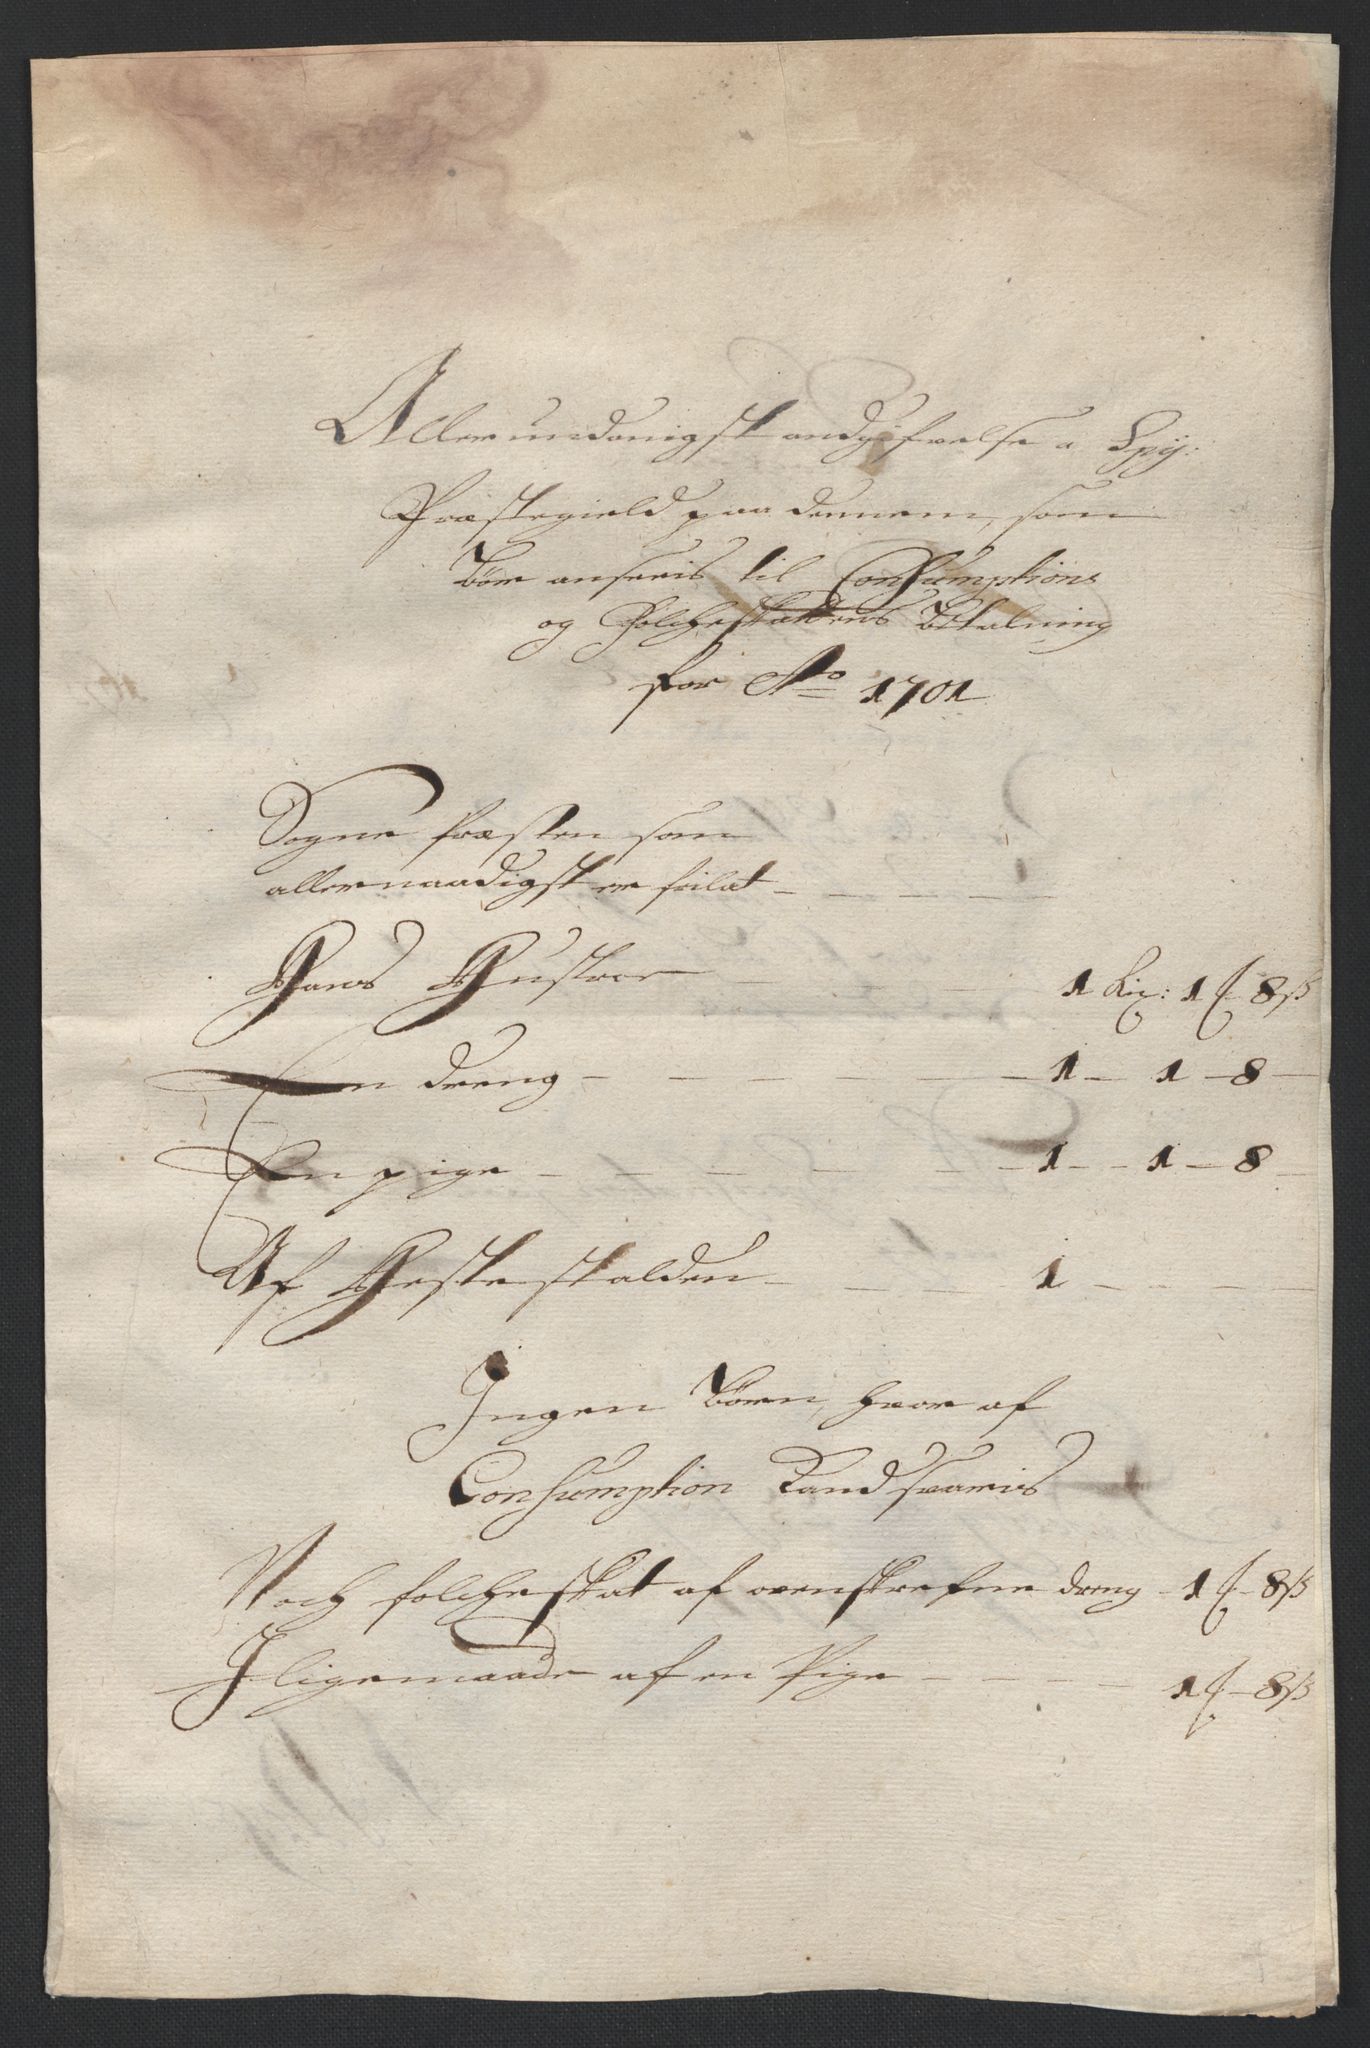 Allerundanigst andgifvelse a Spÿ:
Præstegield paa dennem, som
bør ansees til Consumptions
og Folcheskattens Betalning
for Ao 1701
Sogne Præsten som
allernaadigst er frilat - - - -
Hans Hustroe - - - 1 Rix: 1 ƒ 8 ß
En dreng - - - - 1 - 1 - 8 -
En pige - - - - 1 - 1 - 8 -
Af Hestestalden - - - 1 - - -
Ingen Børn, hvor af
Consumption kand svaris
Noch folcheskat af ovenskrefne dreng - 1 ƒ - 8 ß
Iligemaade af en Pige - - - - 1 ƒ - 8 ß